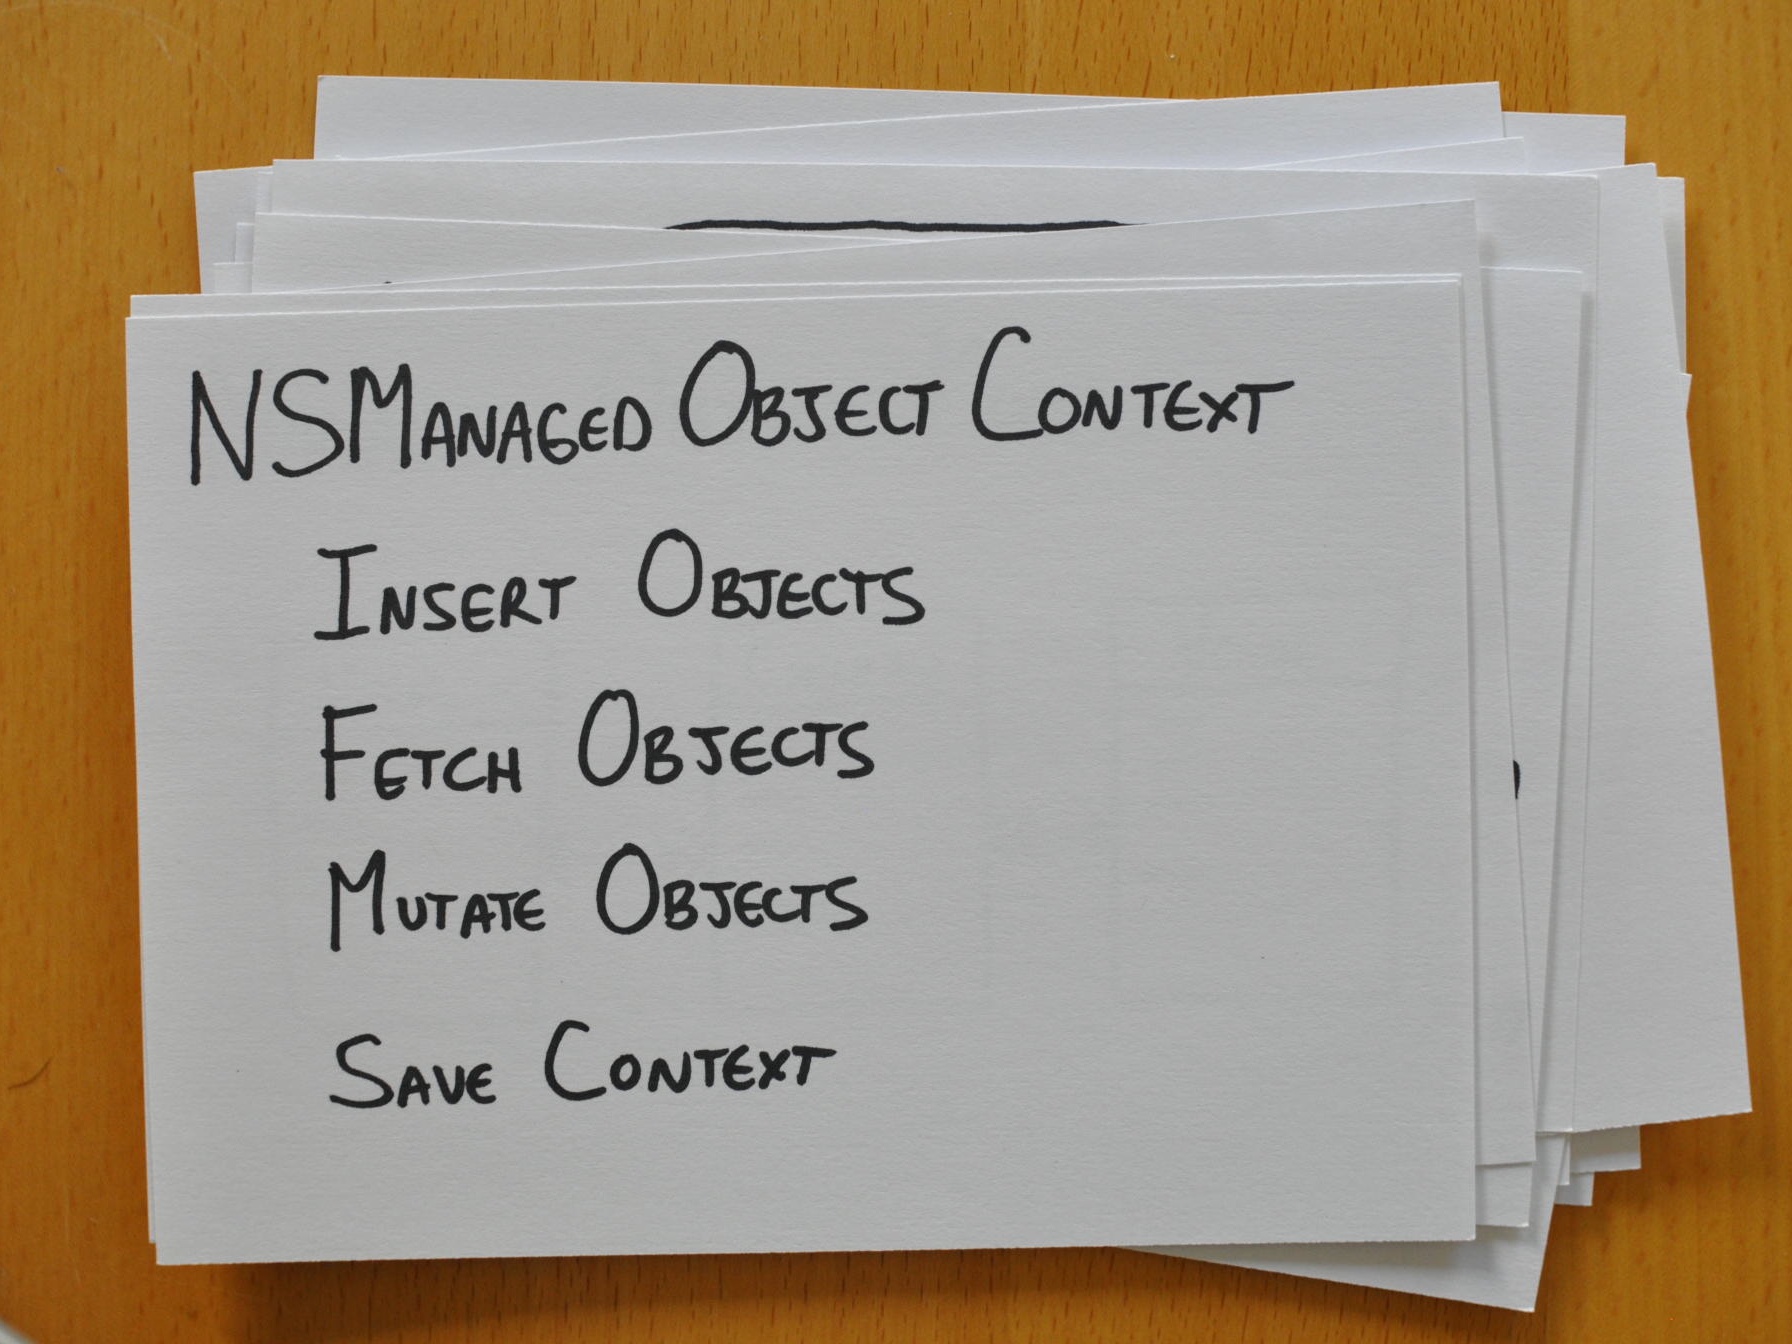 NSManaged Object Context
Insert Objects
Fetch Objects
Mutate Objects
Save Context